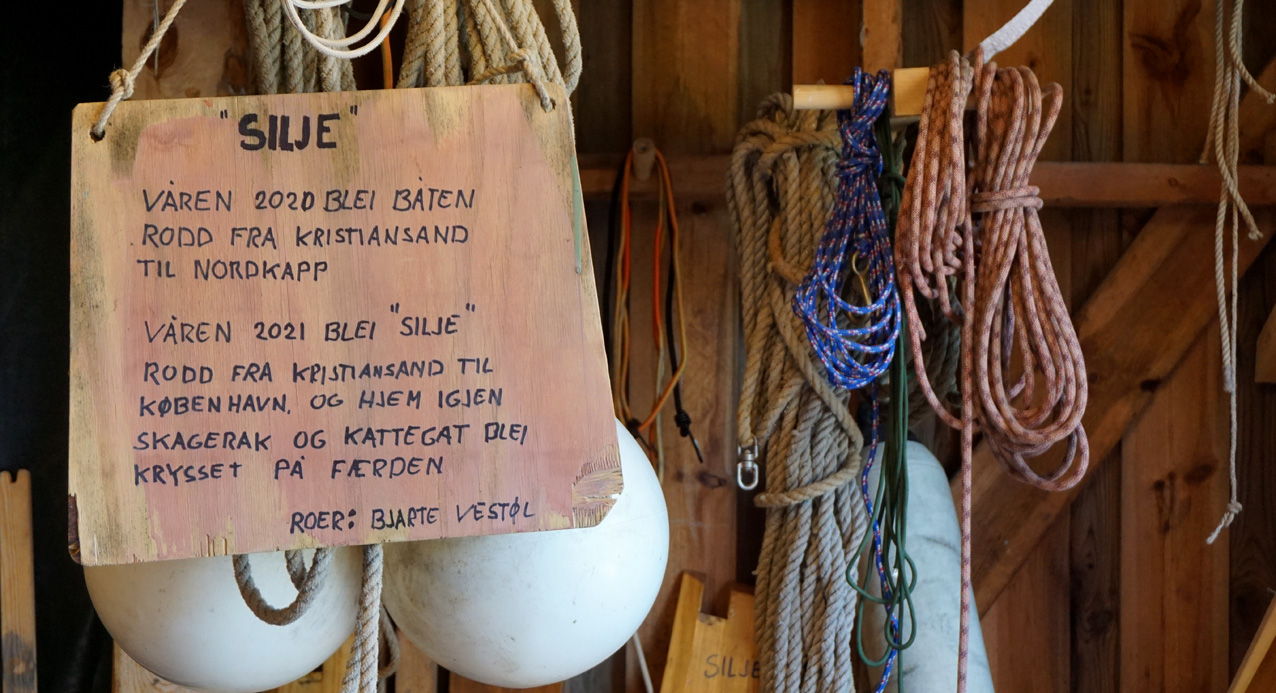 "SILJE"
VÅREN 2020 BLEI BÅTEN
RODD FRA KRISTIANSAND
TIL NORDKAPP
VÅREN 2021 BLEI "SILJE"
RODD FRA KRISTIANSAND TIL
KØBENHAVN, OG HJEM IGJEN
SKAGERAK OG KATTEGAT BLEI
KRYSSET PÅ FÆRDEN
ROER: BJARTE VESTØL
SILJE